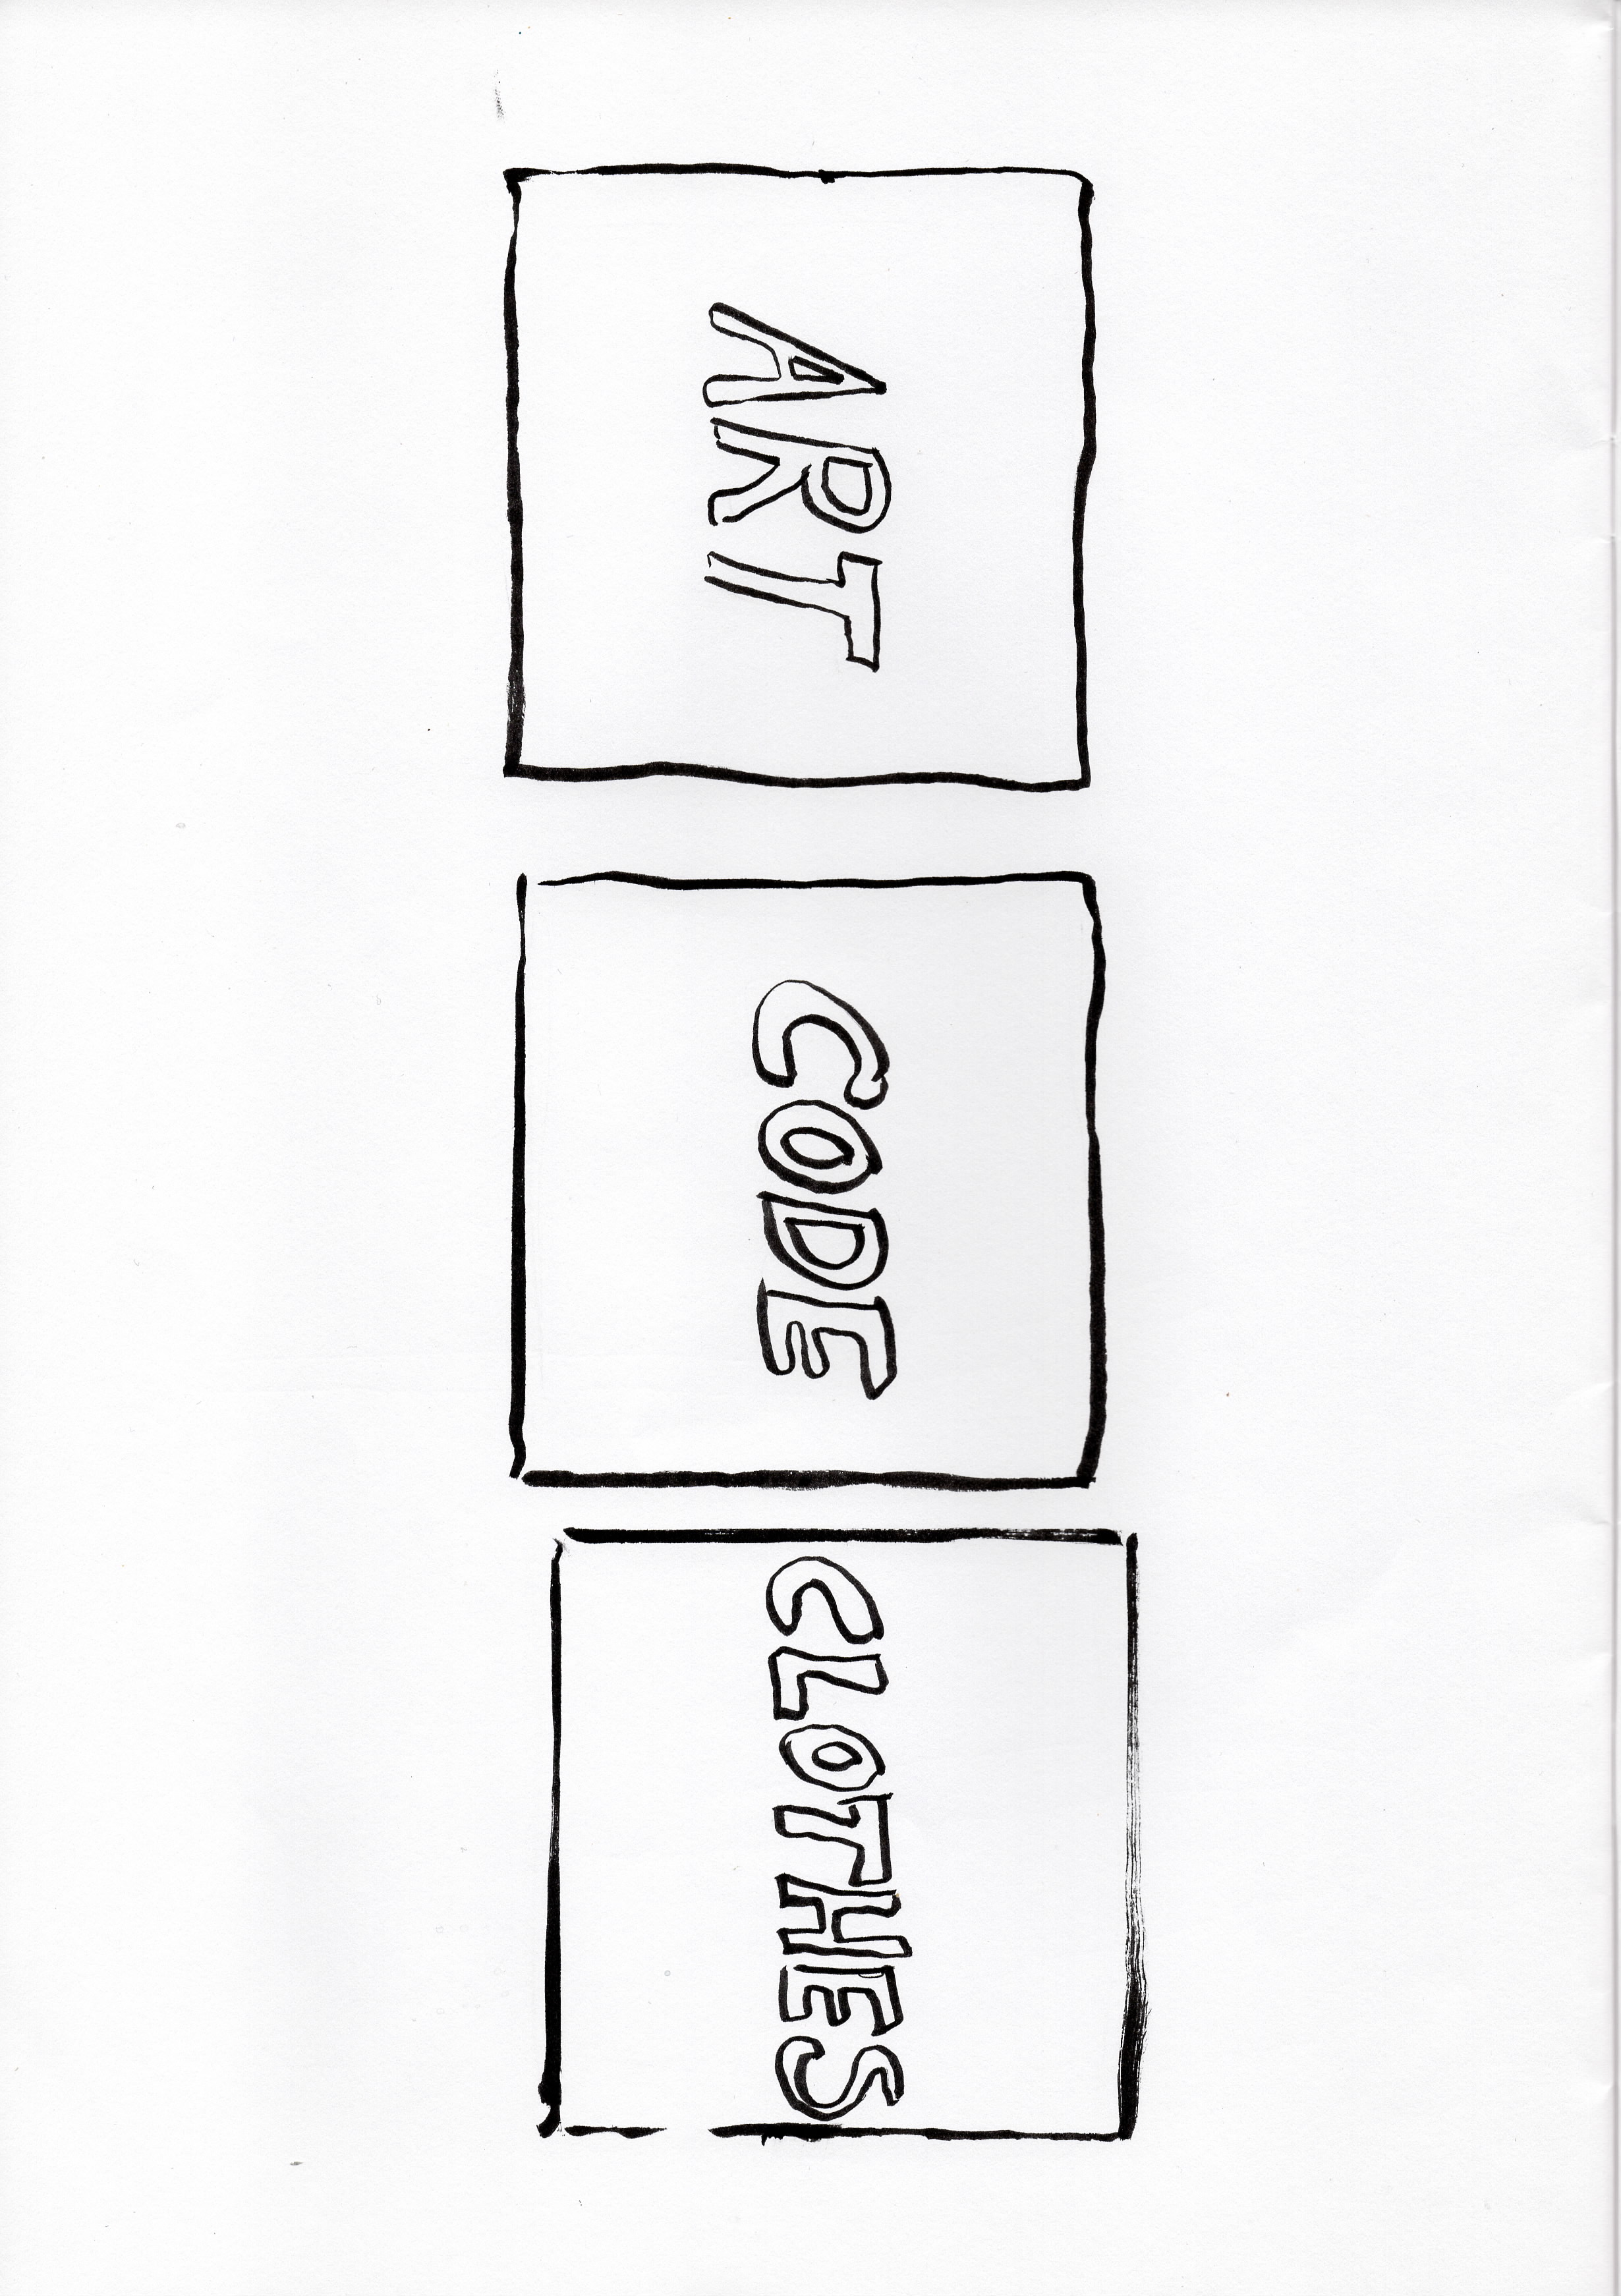 ART
CODE
CLOTHES